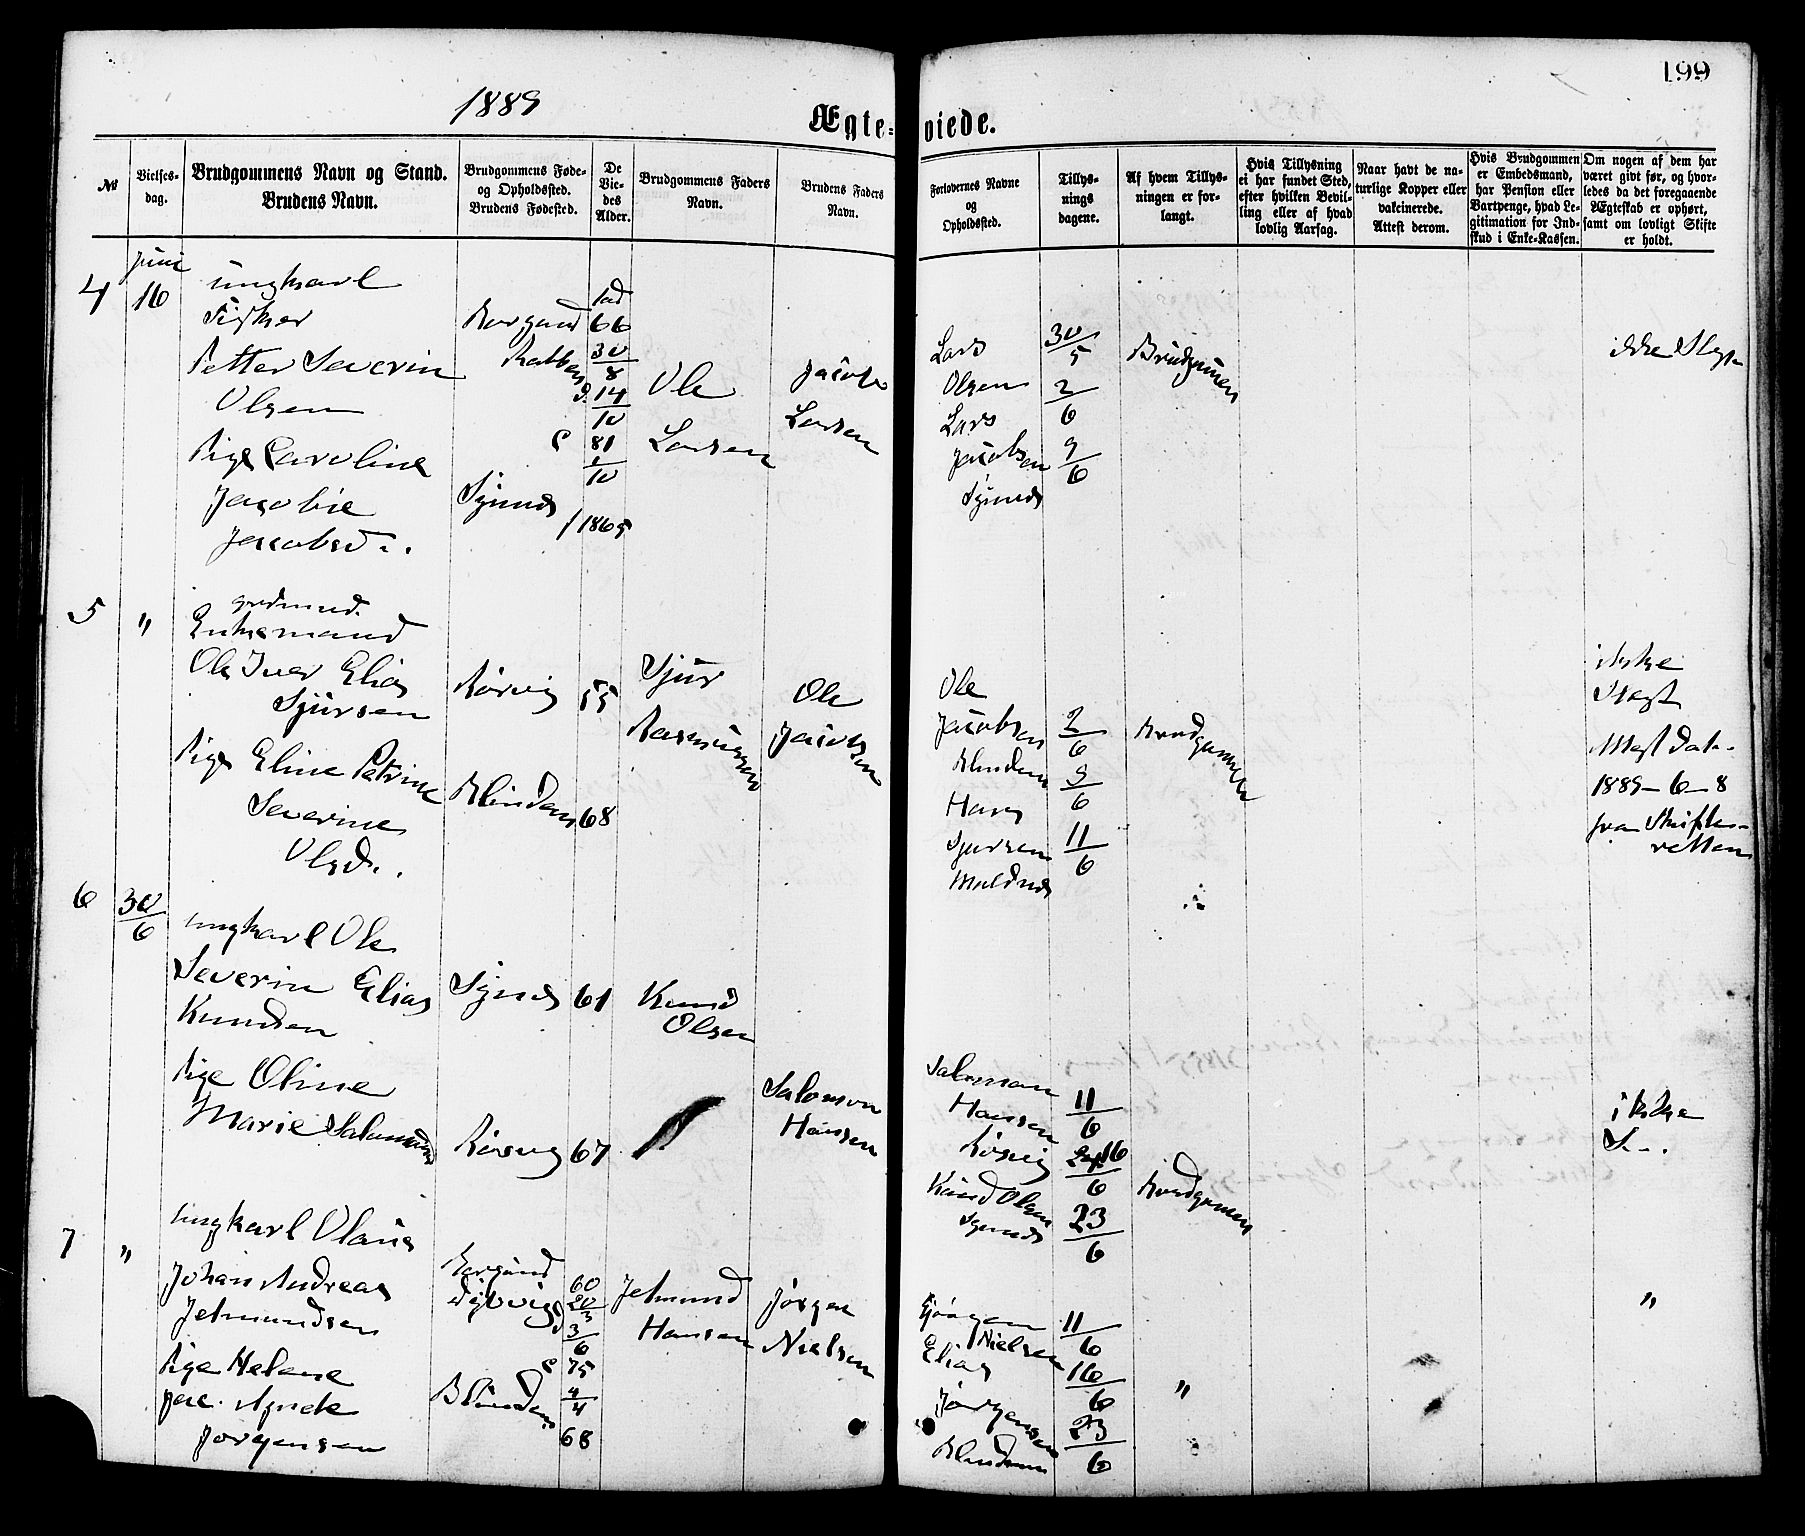 199
1889
Ægte-
viede.
№
Vielses-
dag.
Brudgommens Navn og Stand.
Brudens Navn.
Brudgommens Føde-
og Opholdssted.
Brudens Fødested.
De
Vie-
des
Alder.
Brudgommens Faders
Navn.
Brudens Faders
Navn.
Forlovernes Navne
og
Opholdssted.
Tillys-
nings
dagene.
Af hvem Tillys-
ningen er for-
langt.
Hvis Tillysning
ei har fundet Sted,
efter hvilken Bevil-
ling eller af hvad
lovlig Aarsag.
Naar havt de na-
turlige Kopper eller
vakcinerede.
Attest derom.
Hvis Brudgommen
er Embedsmand,
har Pension eller
Vartpenge, hvad Le-
gitimation for Ind-
skud i Enke-Kassen.
Om nogen af dem har
været givt før, og hvor-
ledes da det foregaaende
Ægteskab er ophørt,
samt om lovligt Skifte
er holdt.
4
Juni
16
ungkarl
Fisker
Petter Severin
Olsen
Pige Caroline
Jacobie
Jacobsd..
Borgund
Synes
66
30/8
d. 14/10
c 81
1/10
1865
Ole
Larsen
Jacob
Larsen
Lars
Olsen
Lars
Jacobsen
Synes
30/5
2/6
9/6
Brudgummen
ikke Slegt
5
"
gaardmand.
Enkemand
Ole Iver Elias
Sjursen
Pige Eline Petrine
Severine
Olsd..
Rørvig
55
Blindem
68
Sjur
Rasmussen
Ole
Jacobsen
Ole
Jacobsen
Blindem
Hans
Sjursen
2/6
9/6
11/6
Brudgummen
ikke
Slegt
1889-6-8
fra Skifte-
retten
6
30/6
ungkarl Ole
Severin Elias
Knudsen
Pige Oline
Marie Salomonsd
Synes
61
Rørvig
67
Knud
Olsen
"
Salomon
Hansen
Salomon
Hansen
Rørvig
Knud Olsen
Synes
11/6
16/6
23/6
Brudgummen
ikke
S-.
7
"
ungkarl Olaus
Johan Andreas
Jetmundsen
Pige Helene
Jørgensen
Borgund
60
20/3
d 3/6
c 75
4/4
Blindem
68
Jetmund
Hansen
Jørgen
Nielsen
Jørgen
Nielsen
Elias
Jørgensen
Blindem
11/6
16/6
23/6
"
"